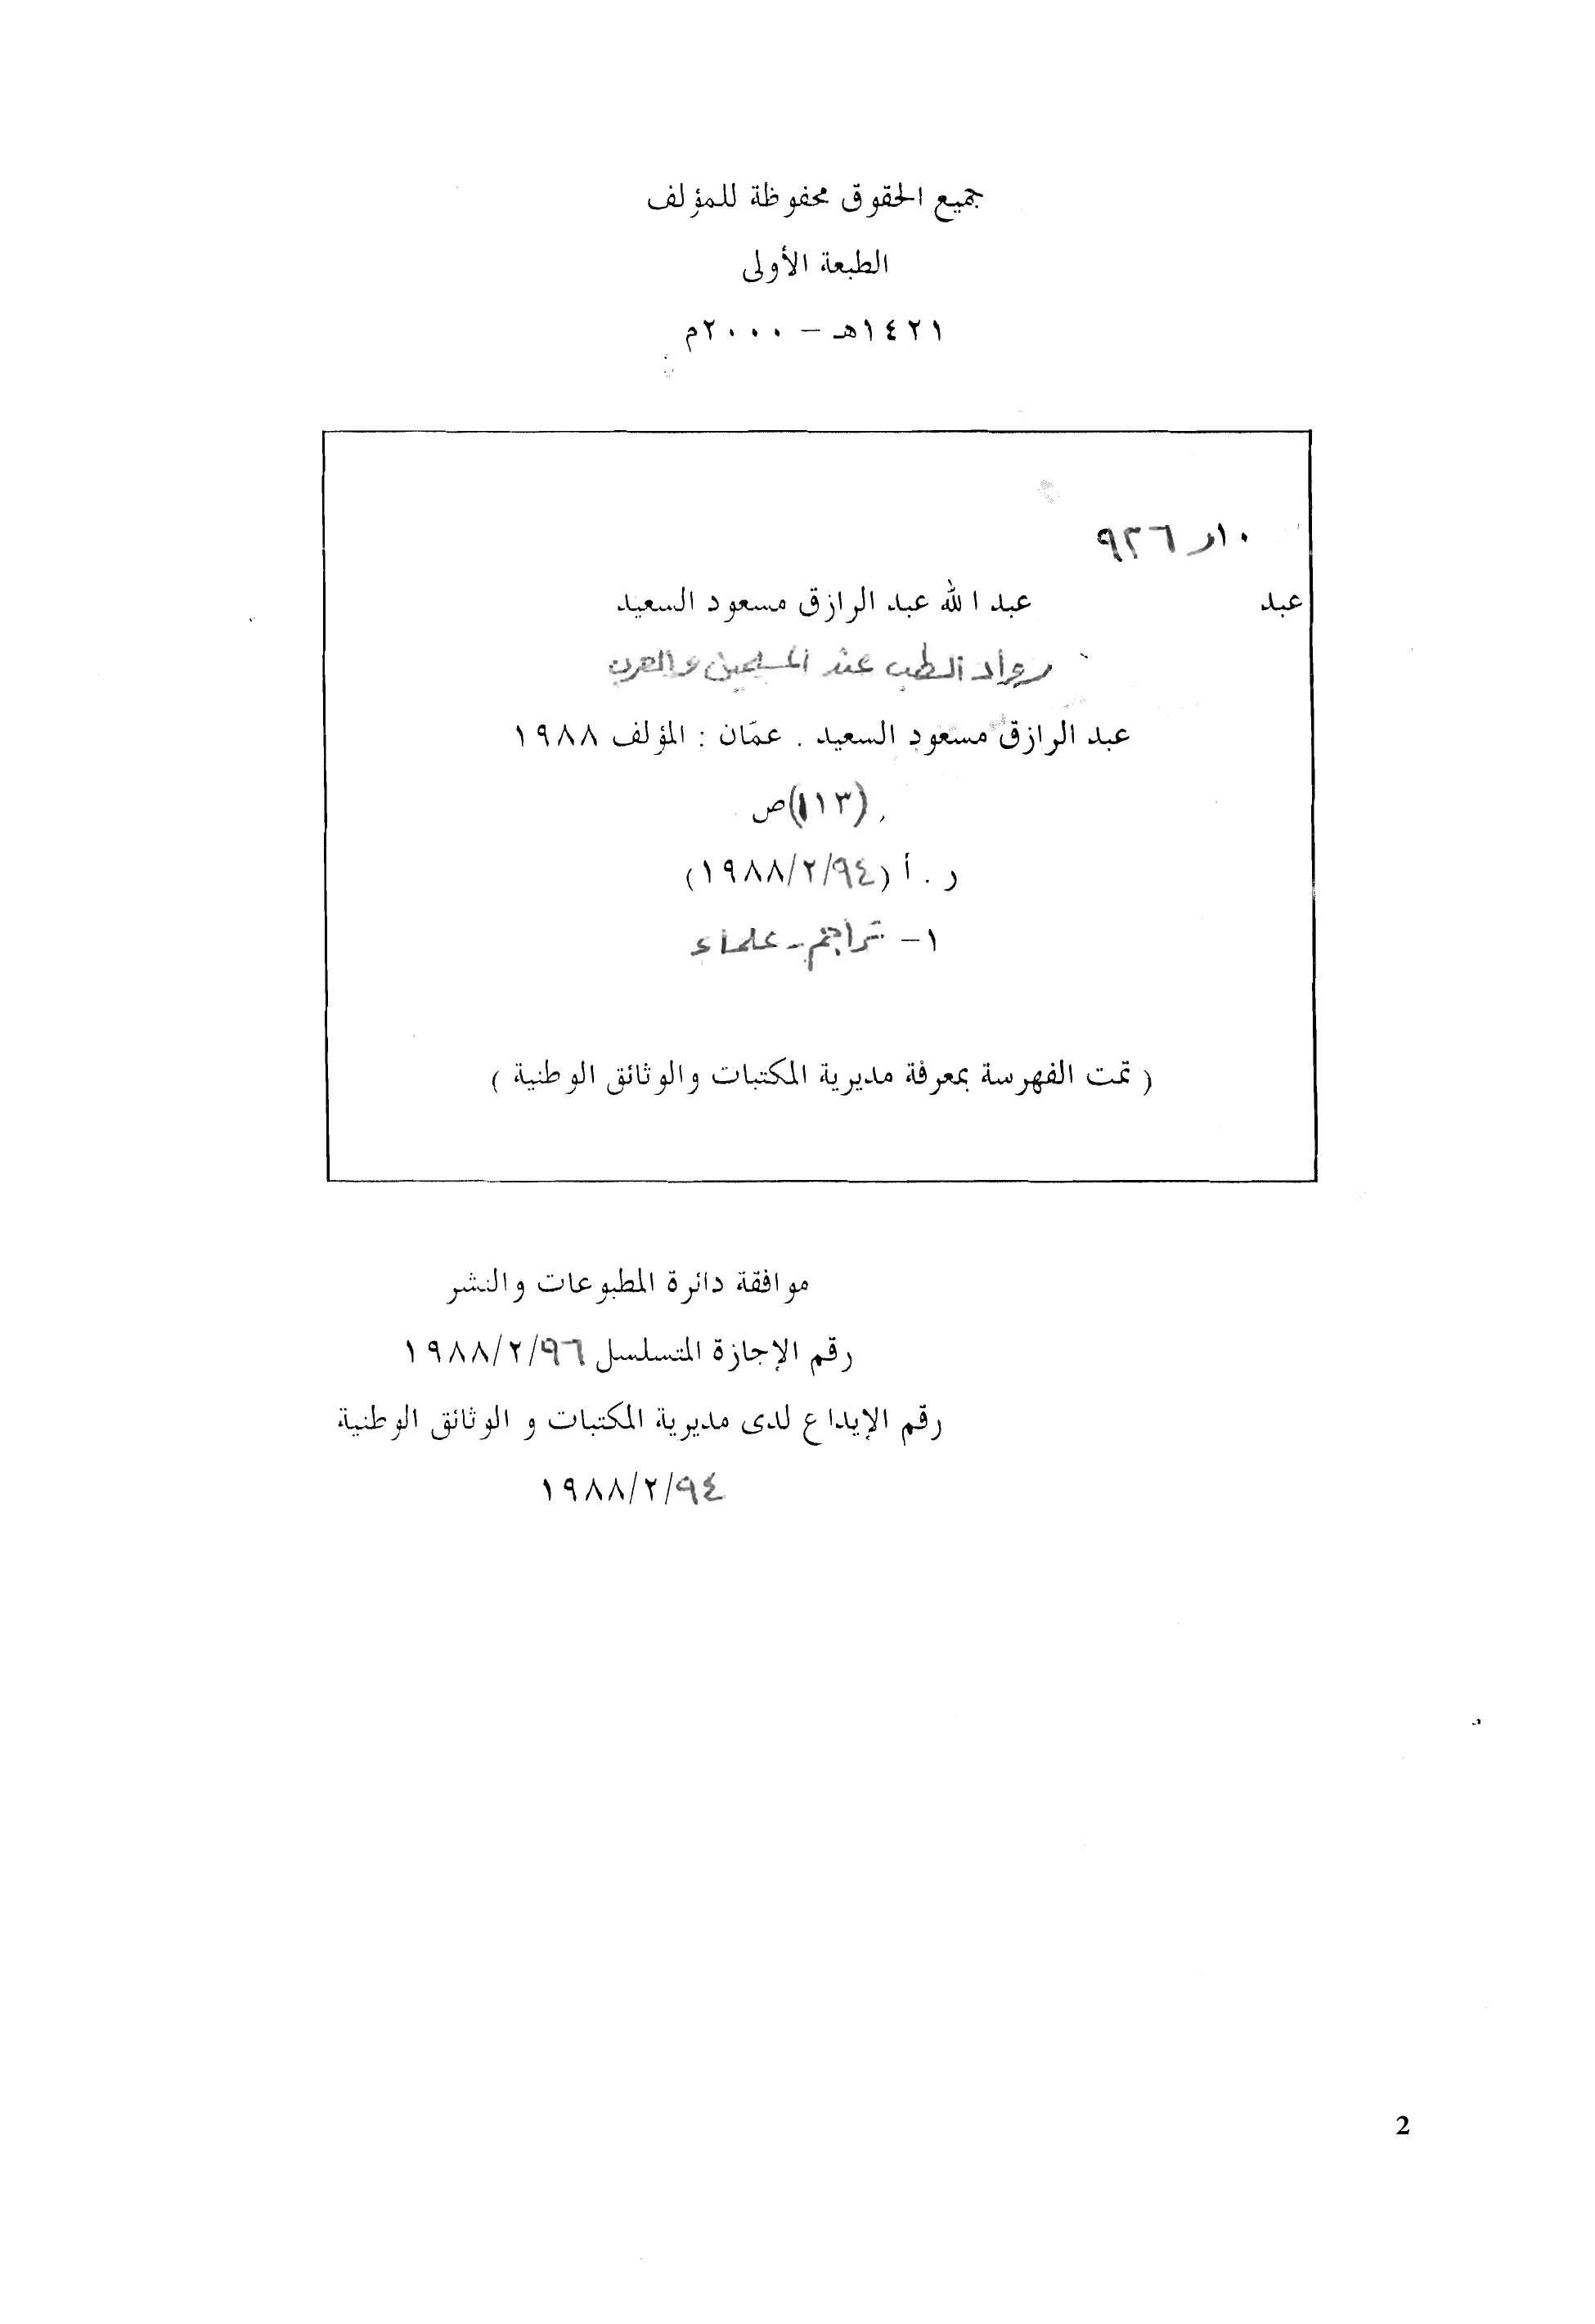 جميع الحقوق محفوظة للمؤلف
الطبعة الأولى
١٤٢١هـ – ٢٠٠٠م
٩٢٦ر١٠
عبد عبد الله عبد الرازق مسعود السعيد
رواد الطب عند المسلمين والعرب
عبد الرازق مسعود السعيد . عمّان : المؤلف ١٩٨٨
(١١٣)ص
ر . أ (١٩٨٨/٢/٩٤)
١– تراجم - علماء
( تمت الفهرسة بمعرفة مديرية المكتبات والوثائق الوطنية )
موافقة دائرة المطبوعات والنشر
رقم الإجازة المتسلسل ١٩٨٨/٢/٩٦
رقم الإيداع لدى مديرية المكتبات و الوثائق الوطنية
١٩٨٨/٢/٩٤
2